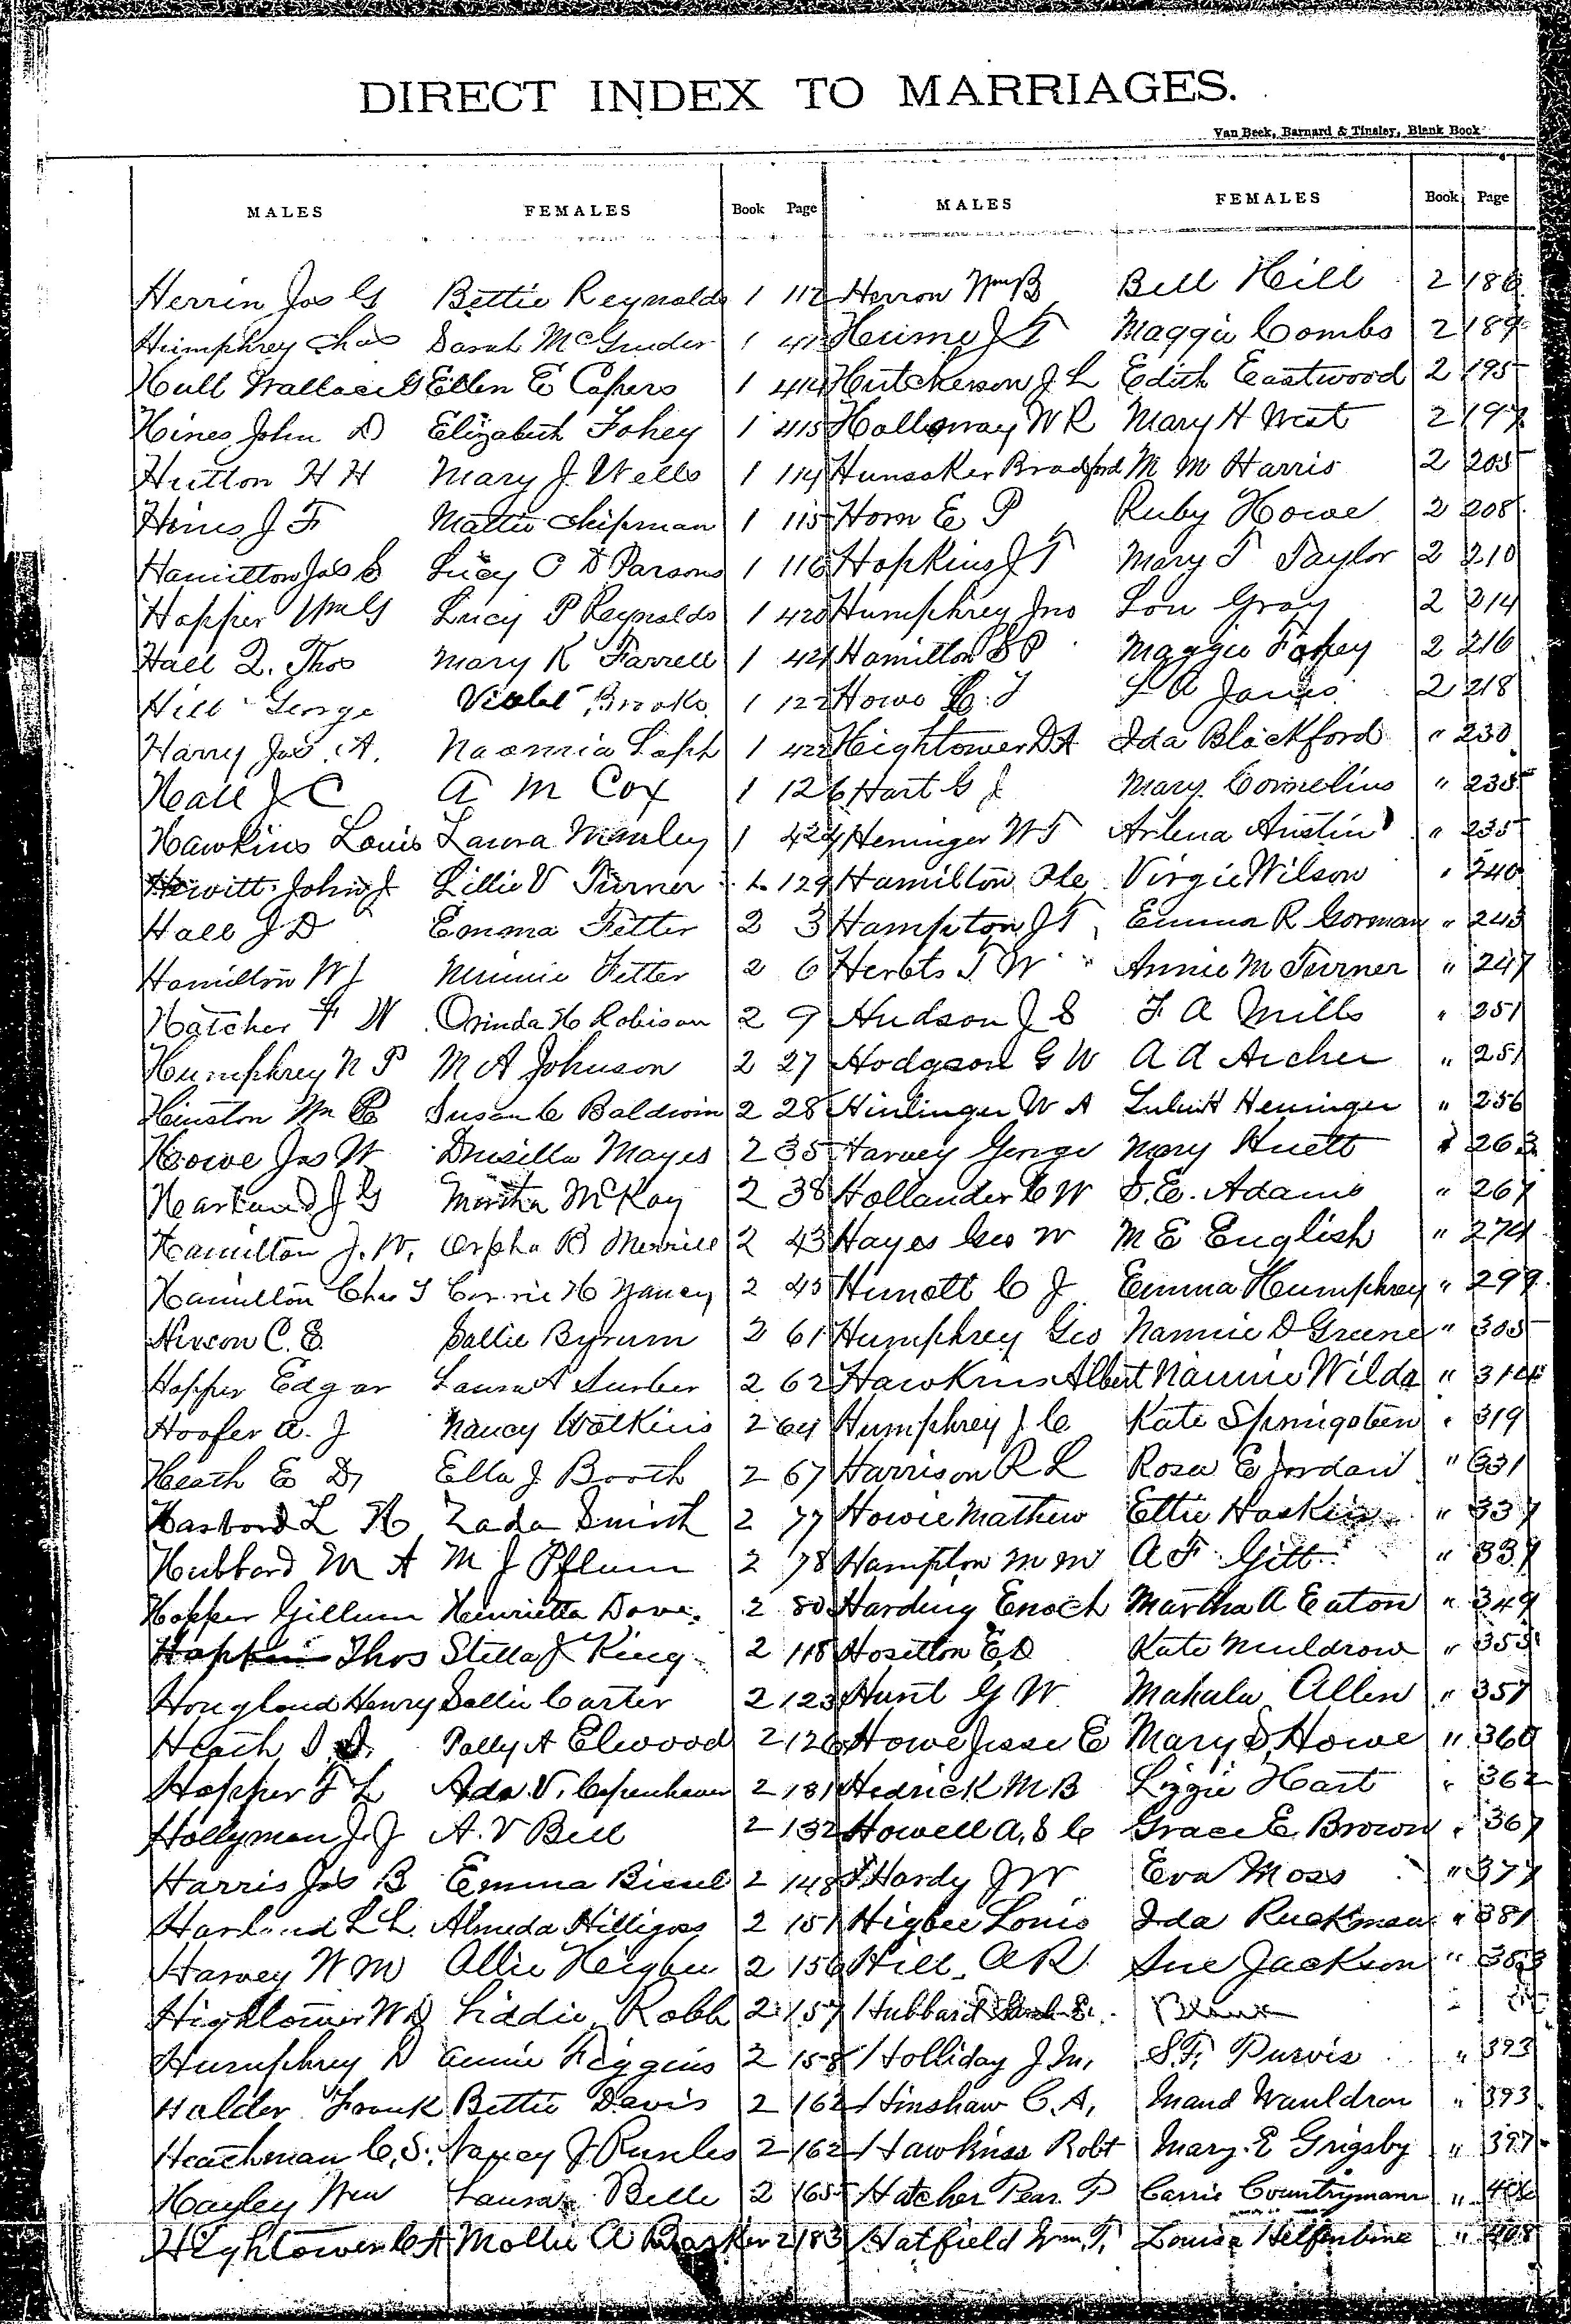 DIRECT INDEX TO MARRIAGES.
Van Beek, Barnard & Tinsley, Blank Book
MALES FEMALES Book Page MALES FEMALES Book Page
Herrin Jas G Bettie Reynolds 1 112 Herron Wm B Bell Hill 2 186
Humphrey Chas Sarah McGruder 1 Hume J T Maggie Combs 2 189
Hull Wallace G Ellen E Capers 1 414 Hutcherson J L Edith Eastwood 2 195
Hines John D Elizabeth Fohey 1 415 Holloway W R Mary H West 2 197
Hutton H H Mary J. Wells 1 114 Hunsaker Bradford M M Harris 2 205
Hines J F Mattie Chipman 1 115 Horn E P Ruby Howe 2 208
Hamilton Jas S Lucy C D Parsons 1 116 Hopkins J T Mary T Taylor 2 210
Hopper Wm G Lucy P Reynolds 1 420 Humphrey Jno Lou Gray 2 214
Hall Q. Thos Mary K Farrell 1 421 Hamilton S P Maggie Fohey 2 216
Hill George Violet Brooks 1 122 Howe C. T L A Janes 2 218
Harry Jas. A. Naomia 1 422 Hightower D A Ida Blackford " 230
Hall J C A M Cox 1 126 Hart G J Mary Cornelius " 235
Hawkins Louis Laura Manley 1 424 Heninger W T Arlena Austin " 235
Hewitt John J Lillie V Turner 1 129 Hamilton Virgie Wilson " 240
Hall J D Emma Fetter 2 3 Hampton J T Emma R Gorman " 243
Hamilton W J Minnie Fetter 2 6 Herbts T W Annie M Turner " 247
Hatcher F W Orinda H Robison 2 9 Hudson J S F A Mills " 251
Humphrey N P M A Johnson 2 27 Hodgson G W A A Archer " 251
Hinston Wm Susan C Baldwin 2 28 Hinlinger W A Lulu H Heninger " 256
Howe Jas W Drusilla Mayes 2 35 Harvey George Mary Huett " 263
Harland J G Martha McKay 2 38 Hollander C W S. E. Adams " 267
Hamilton J. W. Orpha B Merrill 2 43 Hayes Geo W M E English " 274
Hamilton Chas T Corrie H Yancey 2 45 C J Emma Humphrey " 299
Hixson C. E. Sallie Byrum 2 61 Humphrey Geo Nannie D Greene " 305
Hopper Edgar Laura A Surber 2 62 Hawkins Albert Nannie Wilda " 314
Hoofer A. J Nancy Watkins 2 64 Humphrey J C Kate Springsteen " 319
Heath E D Ella J Booth 2 67 Harrison R L Rosa E Jordan " 331
L H Zada Smith 2 77 Howie Mathew Ettie Haskin " 337
Hubbard M A M J Pflum 2 78 Hampton M M A F Gitt " 337
Hopper Gillum Henrietta Dove 2 80 Harding Enoch Martha A Eaton " 349
Hopkins Thos Stella J King 2 118 Hosetton E D Kate Muldrow " 355
Hougland Henry Sallie Carter 2 123 Hunt G W Mahala Allen " 357
Heath Polly A Elwood 2 126 Howe Jesse E Mary S Howe " 360
Hopper F L Ada. V. Copenhaver 2 131 Hedrick M. B Lizzie Hart " 362
Hollyman J. J A. V Bell 2 132 Howell A, S C Grace E. Brown " 367
Harris Jas B Emma Bissel 2 148 Hardy J W Eva Moss " 377
Harland L L. Almeda Hilligoss 2 151 Higbee Louis Ida Ruckman " 381
Harvey W M Allie Heigbee 2 156 Hill A R Sue Jackson " 383
Hightower W D Liddie Robb 2 157 Hubbard
Humphrey D Annie Higgins 2 158 Holliday J M, S. F, Purvis " 393
Halder Frank Bettie Davis 2 162 Hinshaw C. A, Maud Wauldron " 393
Heachman C. S. Nancy J Runles 2 162 Hawkins Robt Mary. E Grigsby " 397
Hayley Wm Laura Belle 2 165 Hatcher P Carrie Countryman "
Hightower C A Mollie A Barker 2 183 Hatfield Wm. T, Louisa Helfenbine " 408